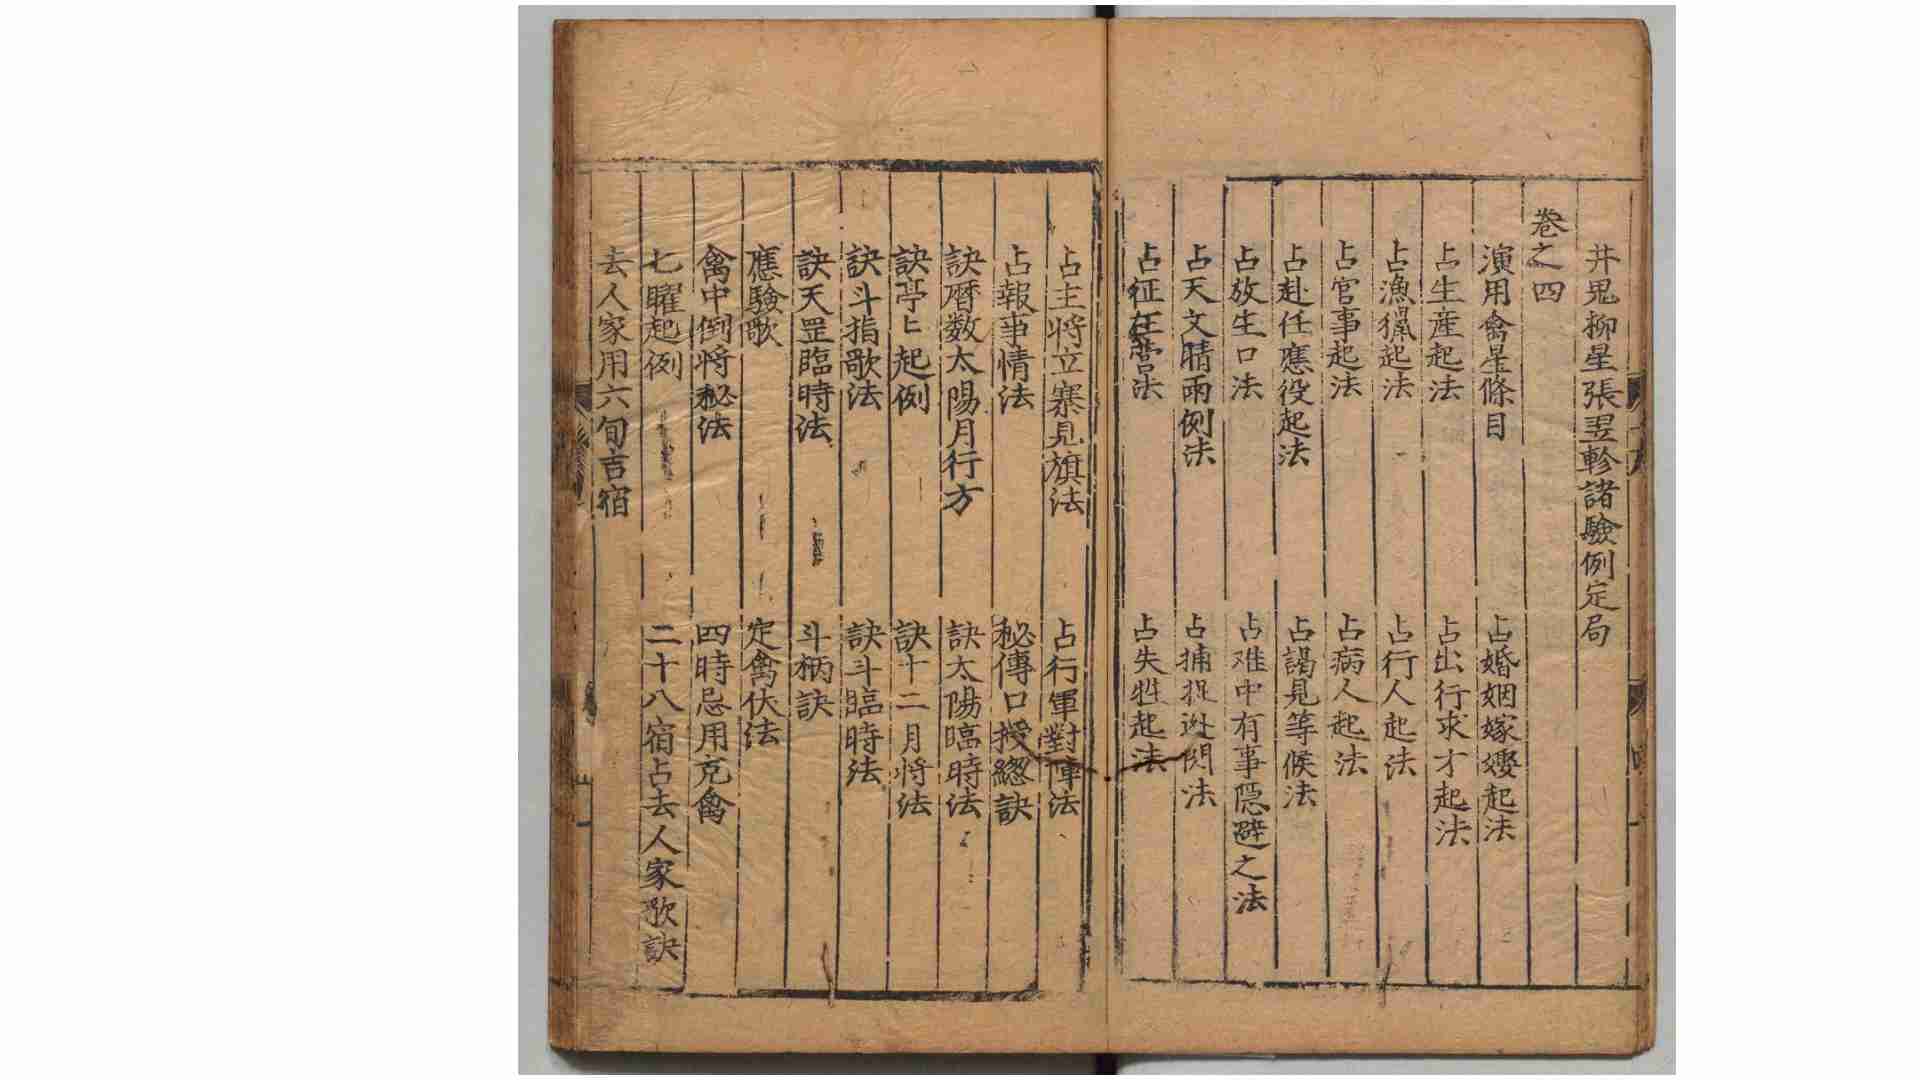 井鬼柳星張翌軫諸驗例定局
卷之四
演用禽星條目　占婚姻嫁娶起法
占生產起法　占出行求才起法
占漁獵起法　占行人起法
占官事起法　占病人起法
占赴任應役起法　占謁見等候法
占放生口法　占难中有事隠避之法
占天文晴雨例法　占捕捉逃閃法
占征 營法　占失牲起法
占主將立寨見旗法　占行軍對陣法
占報事情法　秘傳口授緫訣
訣曆数太陽月行方　訣太陽臨時法
訣亭亭起例　訣十二月将法
訣斗指歌法　訣斗臨時法
訣天罡臨時法　斗柄訣
應驗歌　定禽伏法
禽中倒將秘法　四時忌用克禽
七曜起例　二十八宿占去人家歌訣
去人家用六旬吉宿